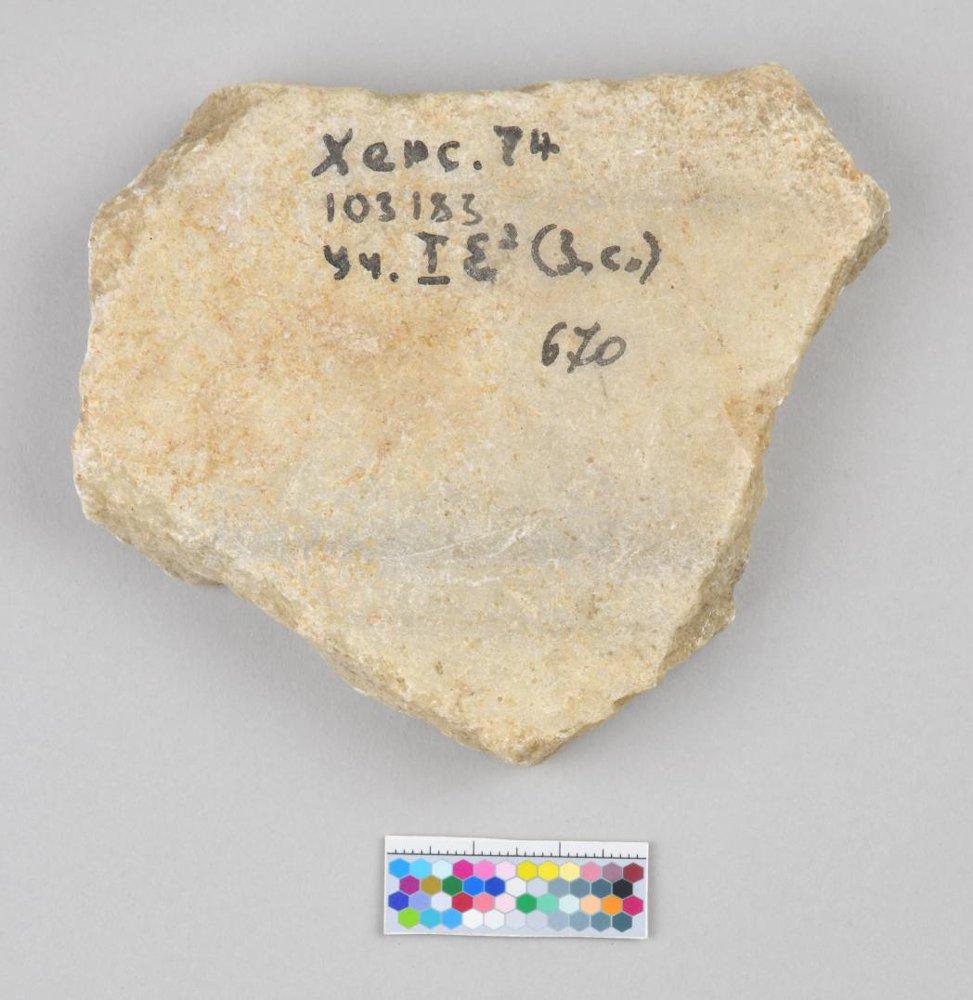 Херс. 74
103183
уч. I Б² (З. с.)
670